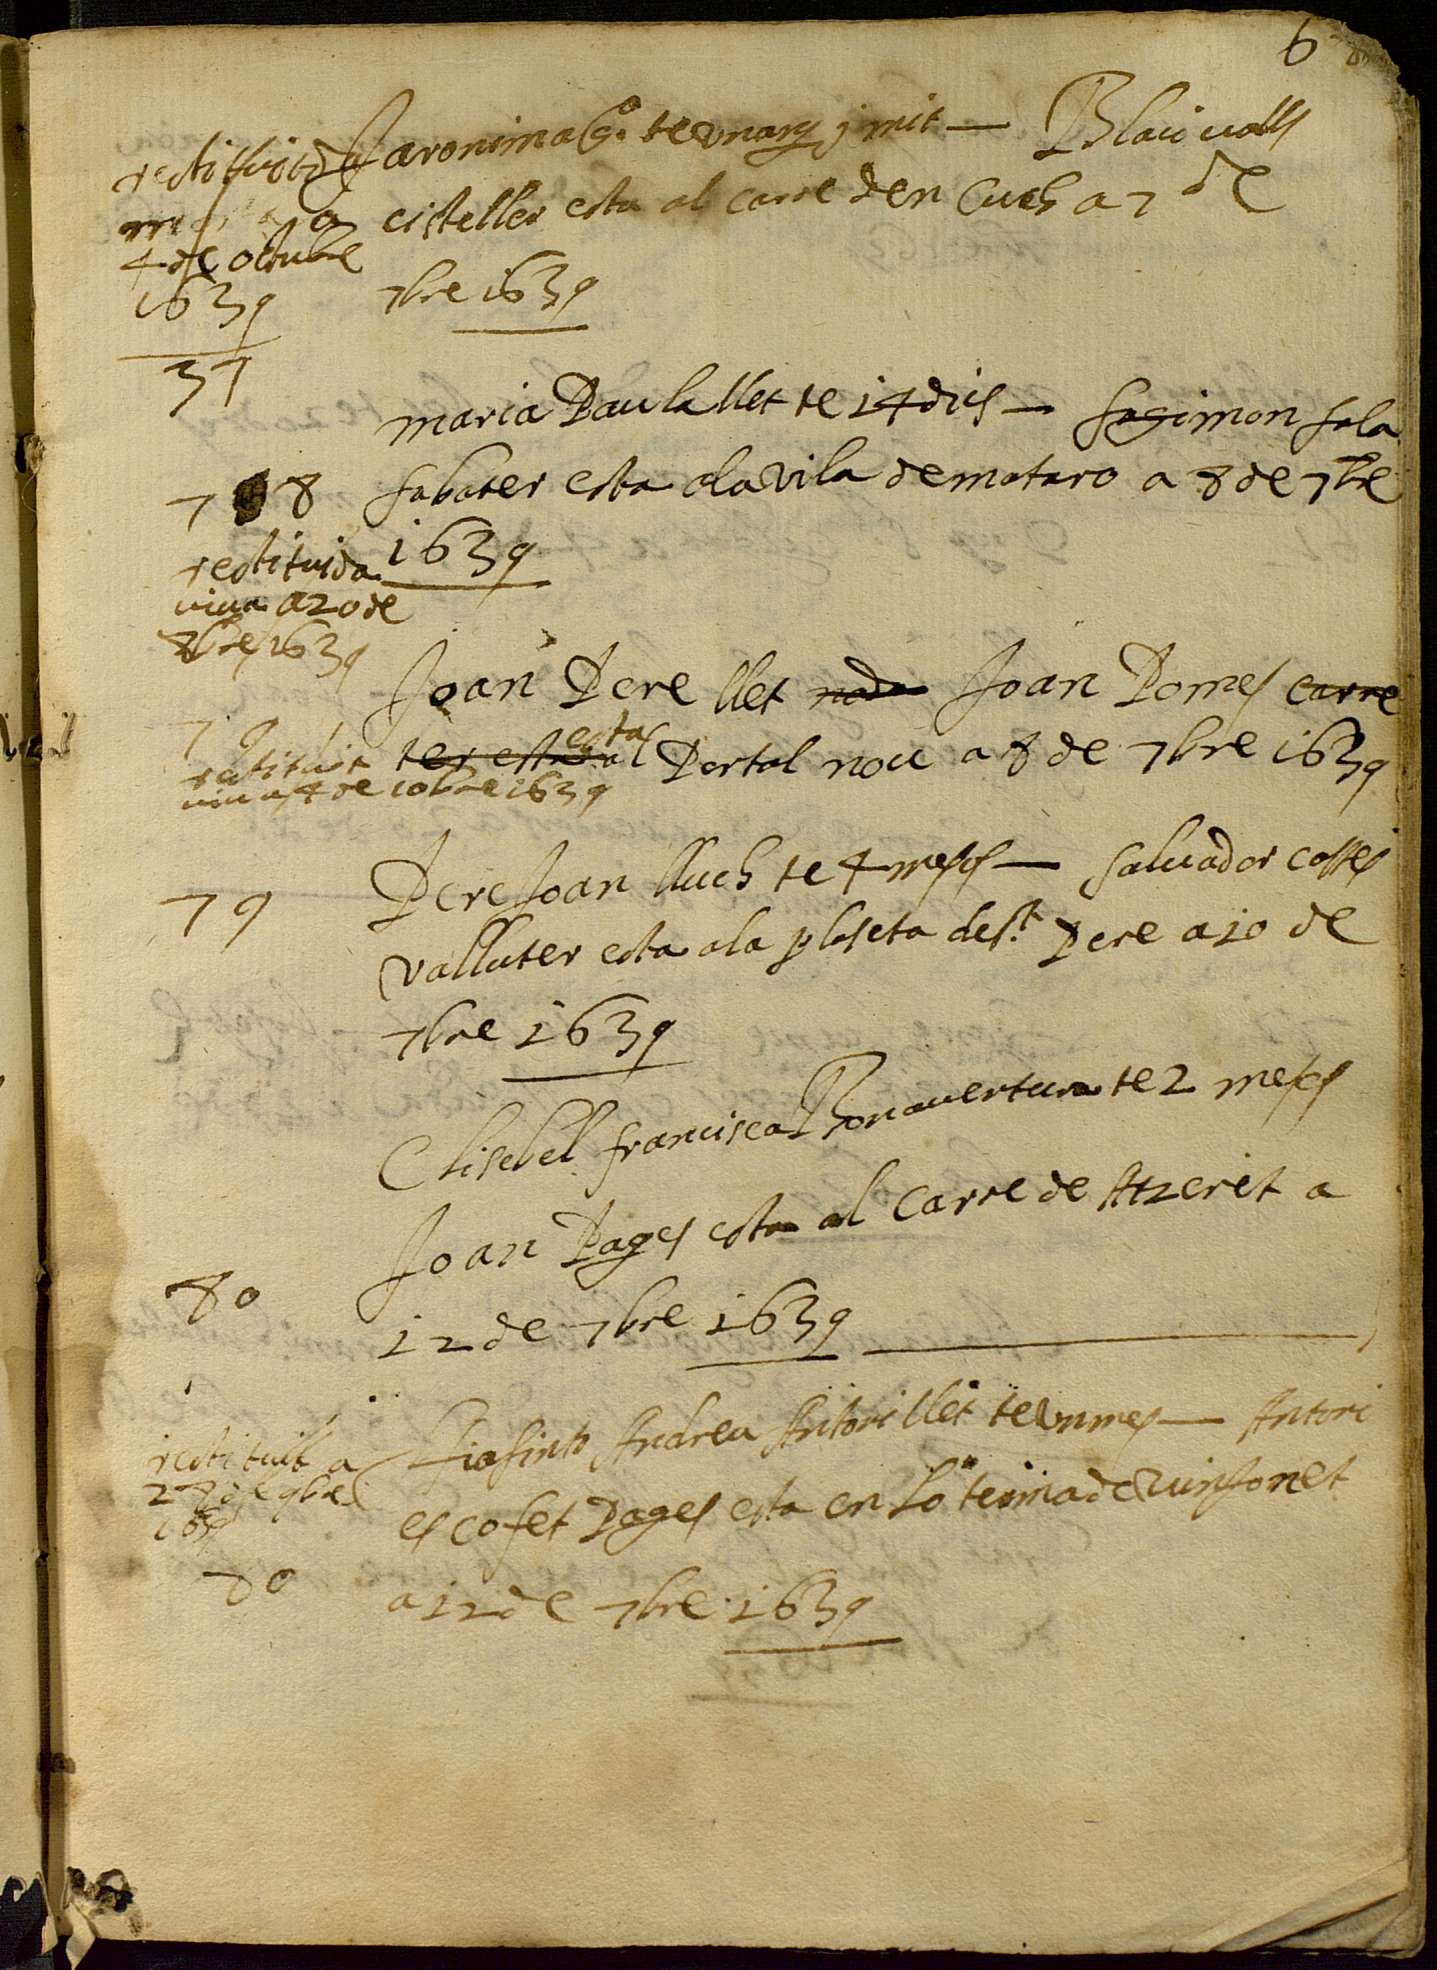 6
restituida
4 de octubre
1639
37
Jaronima Gª. te un any j mit — Blai valls
cisteller esta al carre den Cuch a 7 de
7bre 1639
maria Paula llet te 14 dies — sagimon sala
78
sabater esta a la vila de mataro a 8 de 7bre
1639
restituida
viva a 20 de
8bre 1639
Joan Pere llet Joan Pomes carre
ter esta esta al Portal nou a 8 de 7bre 1639
79
restituit
viu a 4 de 10bre 1639
Pere Joan lluch te 4 mesos — saluador casses
79
valluter esta a la plaseta de st. Pere a 10 de
7bre 1639
Elisebel francisca Bonaventura te 2 mesos
Joan Pages esta al Carre de Atzeret a
80
12 de 7bre 1639
Jiasinto Andreu Antoni llet te un mes — Antoni
restituit a
27 de 9bre
1639
escofet Pages esta en lo terma de
80
a 12 de 7bre 1639